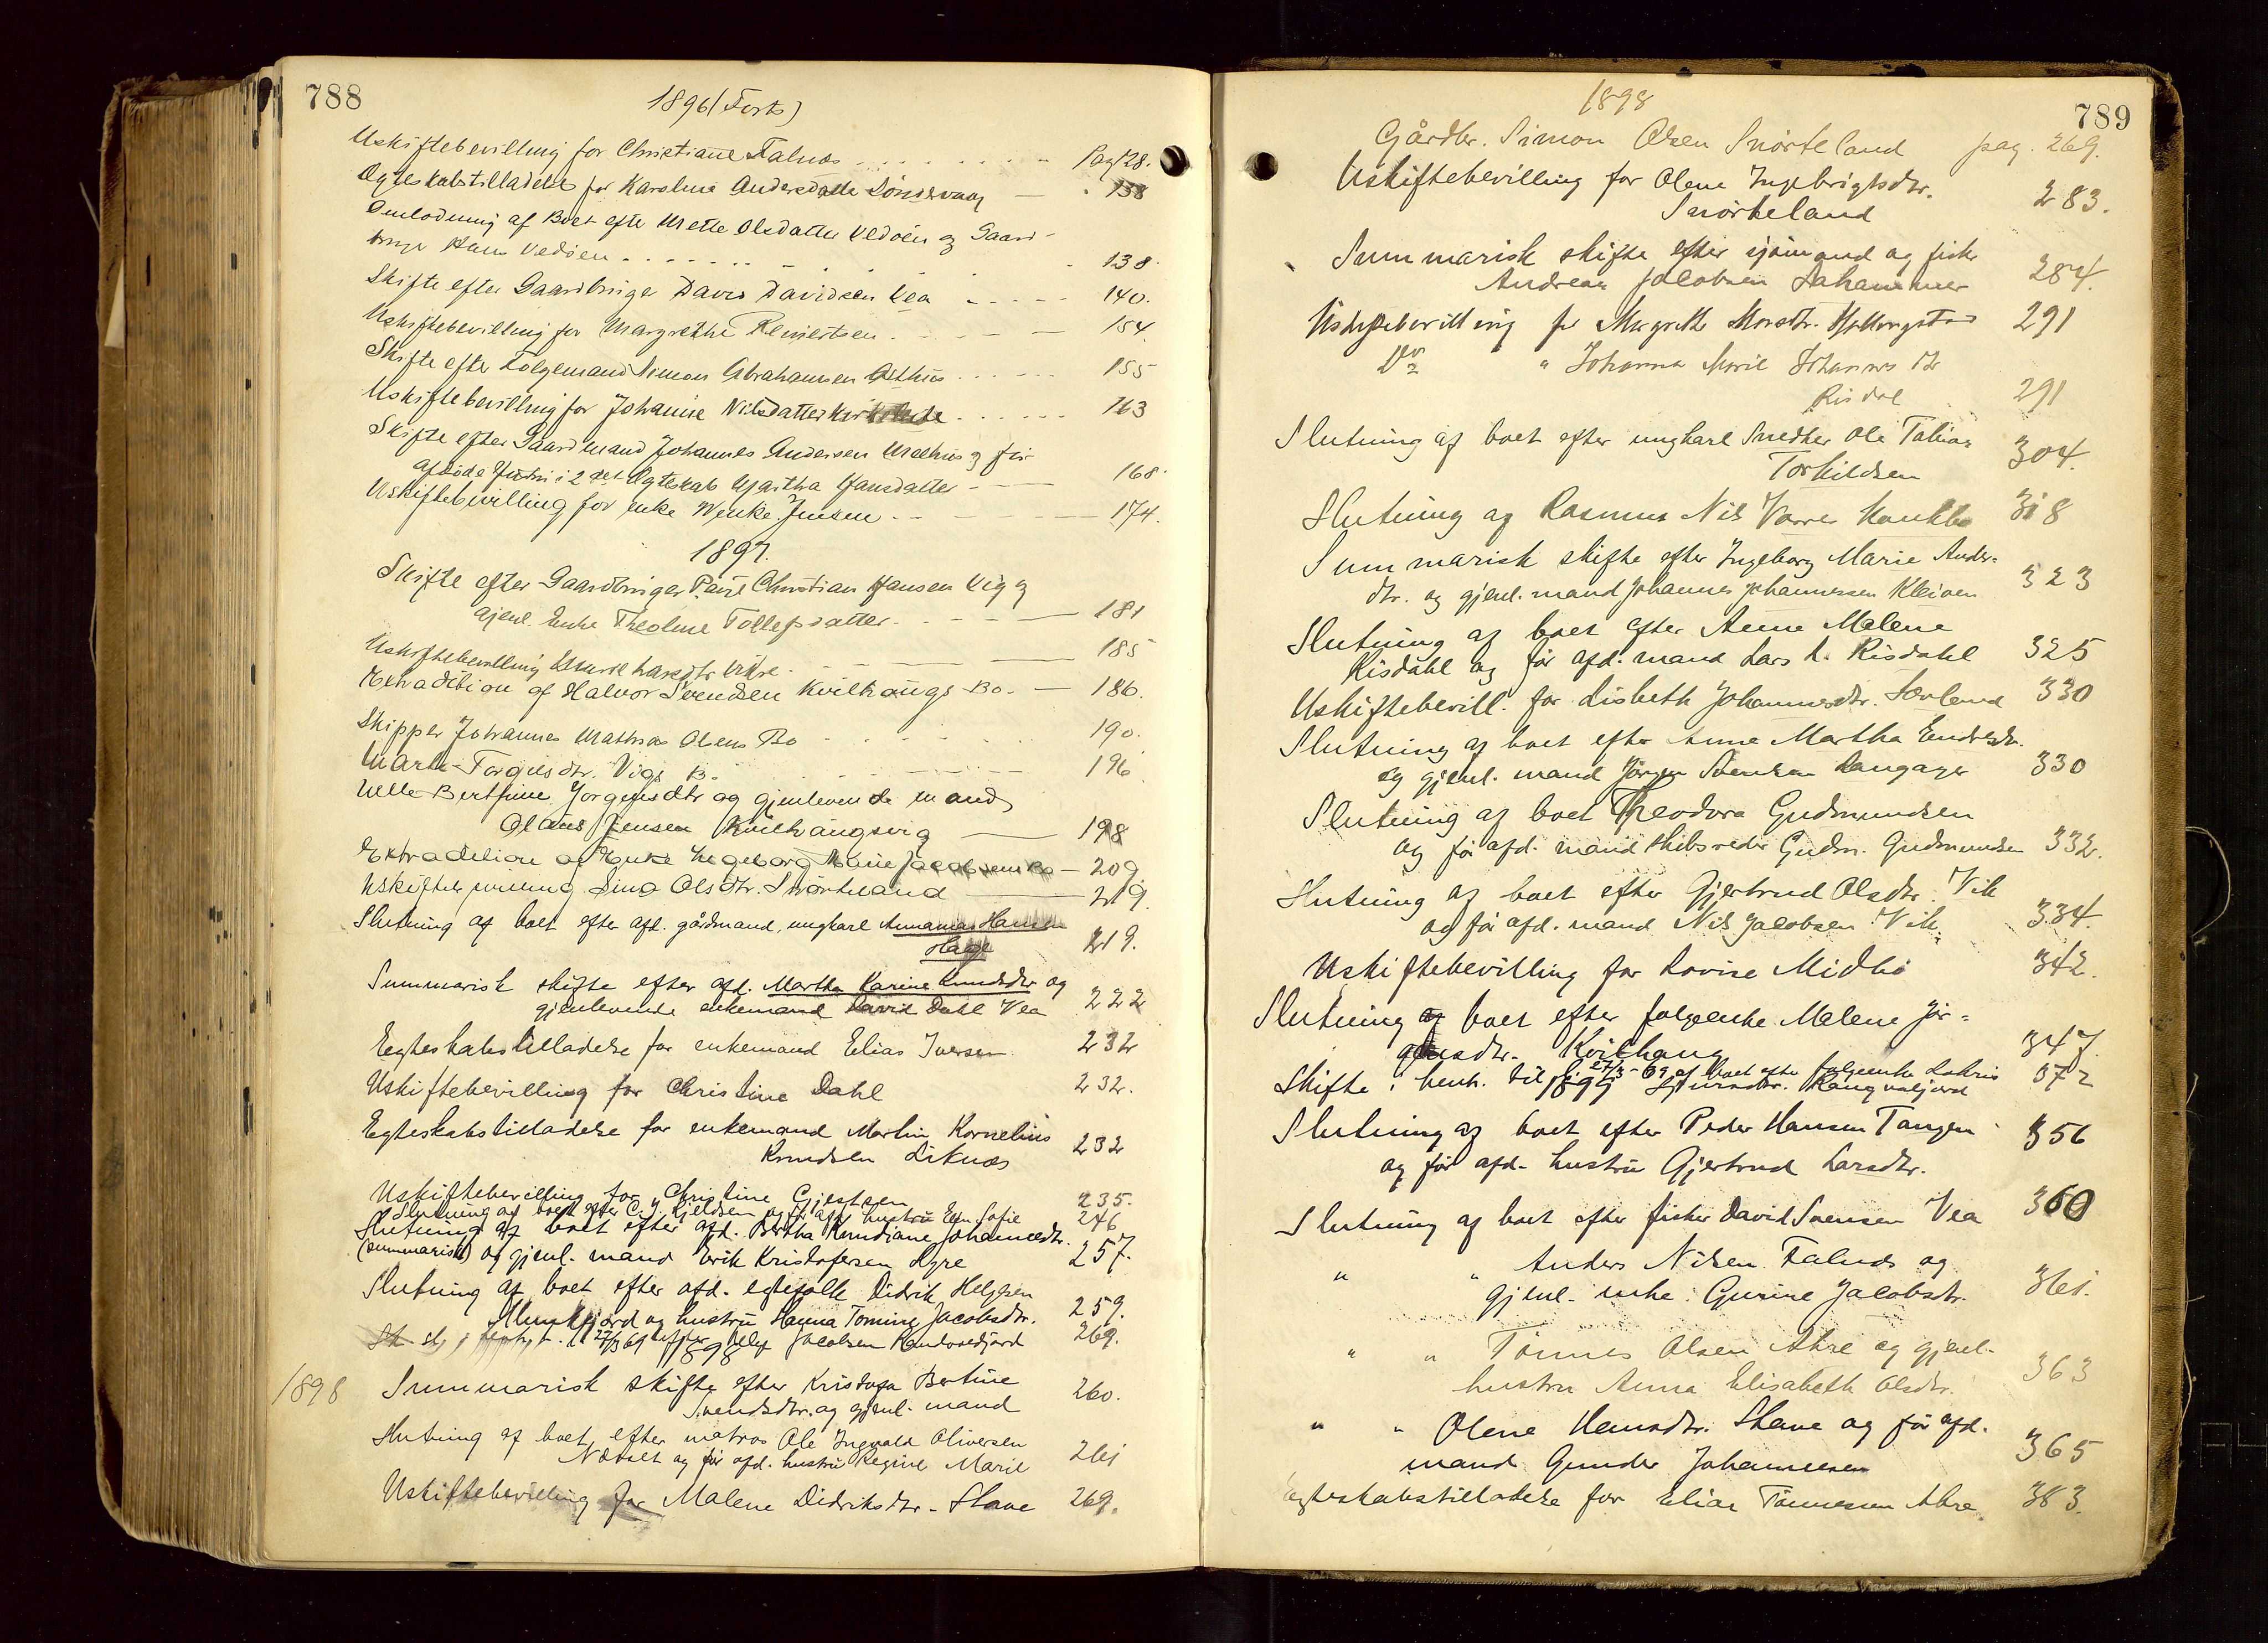 788
1896 (Forts)
Uskiftebevilling for Christiane Falnes Pag 128.
Ægteskabstilladelse for Karoline Andersdatter Søndervaag 138
Omlodning af Boet efter Mette Olsdatter Vedøen og Gaard-
bruger Hans Vedøen 138.
Skifte efter Gaardbruger David Davidsen Vea 140.
Uskiftebevilling for Margrethe Reinertsen 154.
Skifte efter Følgemand Simon Abrahamsen Østhus 155
Uskiftebevilling for Johanne Nilsdatter 163
Skifte efter Gaardmand Johannes Andersen Melhus og før
afdøde Hustru i 2det Ægteskab Martha Hansdatter 168.
Uskiftebevilling for enke Wenke Jensen 174.
1897.
Skifte efter Gaardbruger Paul Christian Hansen Vig og
gjenl. Enke Theoline Tollefsdatter 181
Uskiftebevilling 185
Extradition af Halvor Svendsen Kvilhaugs Bo. 186.
Skipper Johannes Mathias Olsens Bo 190.
Marte Torgersdtr. Vigs Bo 196
Uelle Bertine Jørgensdtr og gjenlevende mand
Olaus Jensen Kvilhaugsvig 198
Extradition af Enke Ingeborg Marie Jacobsens Bo 209.
Uskiftebevilling Sina Olsdtr. Snørteland 219.
Slutning af boet efter afd. gårdmand, ungkarl Ananias Hansen
Hauge 219.
Summarisk skifte efter afd. Martha Karine Knudsdtr og
gjenlevende enkemand David Dahl Vea 222
Egteskabstilladelse for enkemand Elias Iversen 232
Uskiftebevilling for Christine Dahl 232.
Egteskabstilladelse for enkemand Martin Kornelius
Knudsen Liknes 232
Uskiftebevilling for Christine Gjestsen 235.
Slutning af boet efter C. J. Kjeldsen og før afd. hustru Elen Sofie 246
Slutning af boet efter afd. Bertha Kamdiane Johannesdtr.
(summarisk) og gjenl. mand Erik Kristofersen Lyre 257.
Slutning af boet efter afd. egtefolk Didrik Helgesen
og hustru Hanna Tomine Jacobsdtr. 259.
27/3 69 efter Jacobsen 269.
1898
1898 Summarisk skifte efter Kristofa Bertine
Svendsdtr. og gjenl. mand 260.
Slutning af boet efter matros Ole Ingvald Oliversen
og før afd. hustru Regine Marie 261
Uskiftebevilling for Malene Didriksdtr. Stave 269.
789
1898
Gårdbr. Simon Olsen Snørteland pag. 269.
Uskiftebevilling for Olene Ingebrigtsdtr.
Snørteland 283.
Summarisk skifte efter sjømand og fisker
Andreas Jacobsen Lahammer 284.
Uskiftebevilling for Margrethe 291
Do " Johanna Marie Johannesdtr
Risdal 291
Slutning af boet efter ungkarl Snedker Ole Tobias
Torkildsen 304.
Slutning af Rasmus Nils 318
Summarisk skifte efter Ingeborg Marie Anders-
dtr. og gjenl. mand Johannes Johannessen Kleiven 323
Slutning af boet efter Anne Malene
Risdahl og før afd. mand Lars L. Risdahl 325
Uskiftebevill. for Lisbeth Johannesdtr. Sørland 330
Slutning af boet efter Anne Martha Endresdtr.
og gjenl. mand Jørgen Svendsen Langager 330
Slutning af boet Theodora Gudmundsen
og før afd. mand skibsreder Gudm. Gudmundsen 332.
Slutning af boet efter Gjertrud Olsdtr. Vik
og før afd. mand Nils Jacobsen Vik. 334.
Uskiftebevilling for Lovise Midbø 342.
Slutning af boet efter følgeenke Malene Jør-
gensdtr. Kvilhaug 347.
Skifte i henh. til l. 27/3-69 af boet efter følgeenke 372
1899
Slutning af boet efter Peder Hansen Tangen 356
og før afd. hustru Gjertrud Larsdtr.
Slutning af boet efter fisker David Svensen Vea 360
" " Anders Nilsen Falnes og
gjenl. enke Gurine Jacobsdtr. 361.
" " Tönnes Olsen Åkre og gjenl.
hustru Anna Elisabeth Olsdtr. 363
" " Olene Hansdtr. Stave og før afd.
mand Gunder Johannesen 365
Egteskabstilladelse for Elias Tönnesen Åkre. 383.